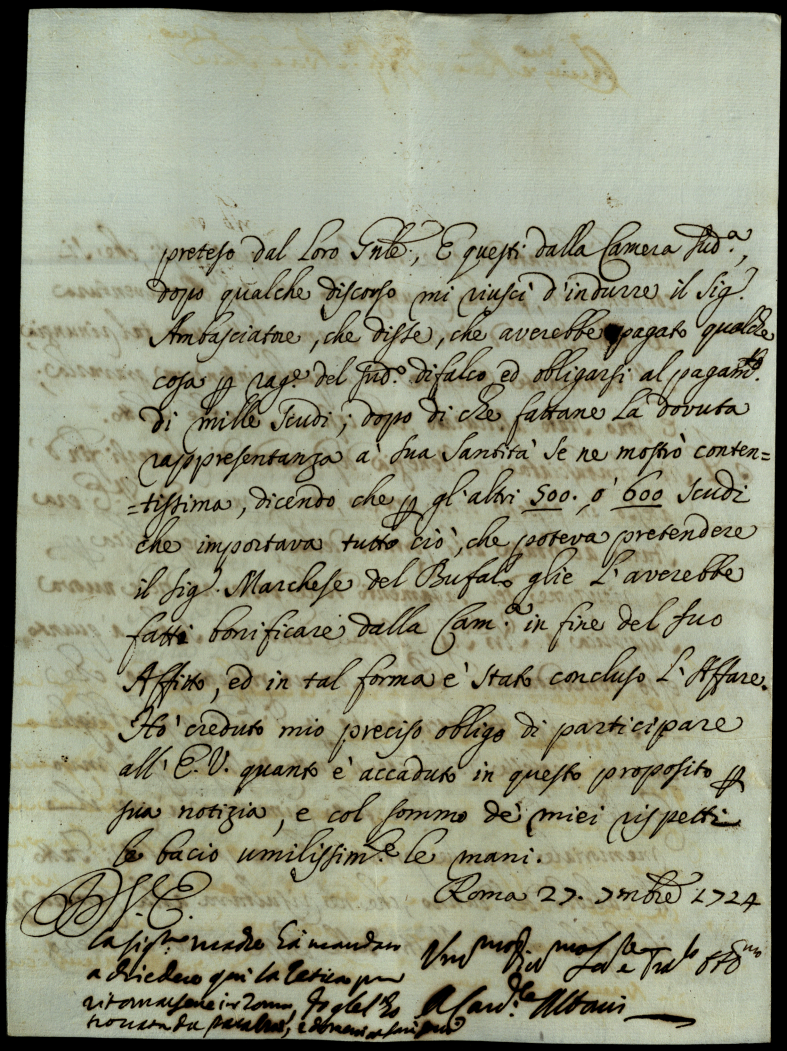 preteso dal Loro Gnle, E questi dalla Camera sud.ª,
dopo qualche discorso mi riuscì d'indurre il Sig.
Ambasciatore, che disse, che averebbe pagato qualche
cosa ꝑ rag.e del sud.º difalco, ed obligarsi al pagam.to
di mille scudi; dopo di che fattane la dovuta
rappresentanza à sua Santità se ne mostrò conten=
=tissima, dicendo che ꝑ gl'altri 500. ò 600 scudi
che importava tutto ciò, che poteva pretendere
il Sig. Marchese del Bufalo glie l'averebbe
fatti bonificare dalla Cam.ª in fine del suo
Affitto, ed in tal forma è stato concluso L'Affare.
Hò creduto mio preciso obligo di participare
all' E. V. quanto è accaduto in questo proposito ꝑ
sua notizia, e col sommo de' miei rispetti
le bacio umilissim.e le mani.
Roma 27. 7mbre 1724
La Sig.ra madre hà mandato
a chiedere quì la letica per
ritornarsene in Roma,
A Card.le Albani